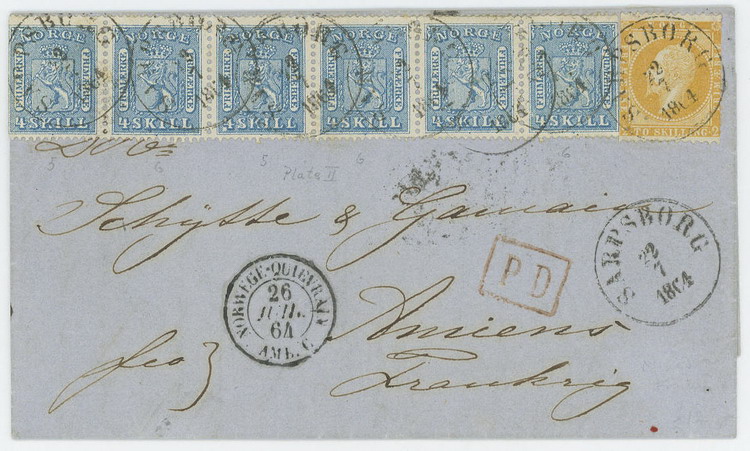 NORGE NORGE NORGE NORGE NORGE NORGE
FRIMÆRKE FRIMÆRKE FRIMÆRKE FRIMÆRKE FRIMÆRKE FRIMÆRKE
4 SKILL 4 SKILL 4 SKILL 4 SKILL 4 SKILL 4 SKILL
TO SKILLING 2
SARPSBORG
22
7
1864
5 6 5 6 5 6
Plate II
Schÿtte & Gamain
SARPSBORG
22
7
1864
P D
NORWEGE-QUIEVRAIN
26
JUIL.
64
AMB. C
Amiens
fco 3
Frankrig